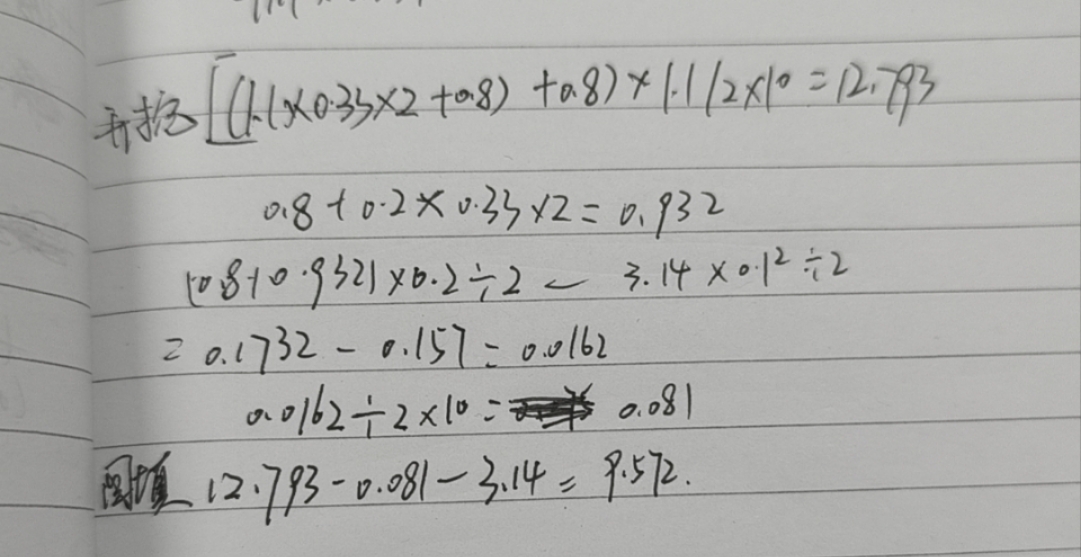 开挖 [(1.1×0.33×2+0.8)+0.8)×1.1/2×10=12.793
0.8+0.2×0.33×2=0.932
(0.8+0.932)×0.2÷2-3.14×0.1²÷2
=0.1732-0.157=0.0162
0.0162÷2×10= 0.081
回填 12.793-0.081-3.14=9.572.